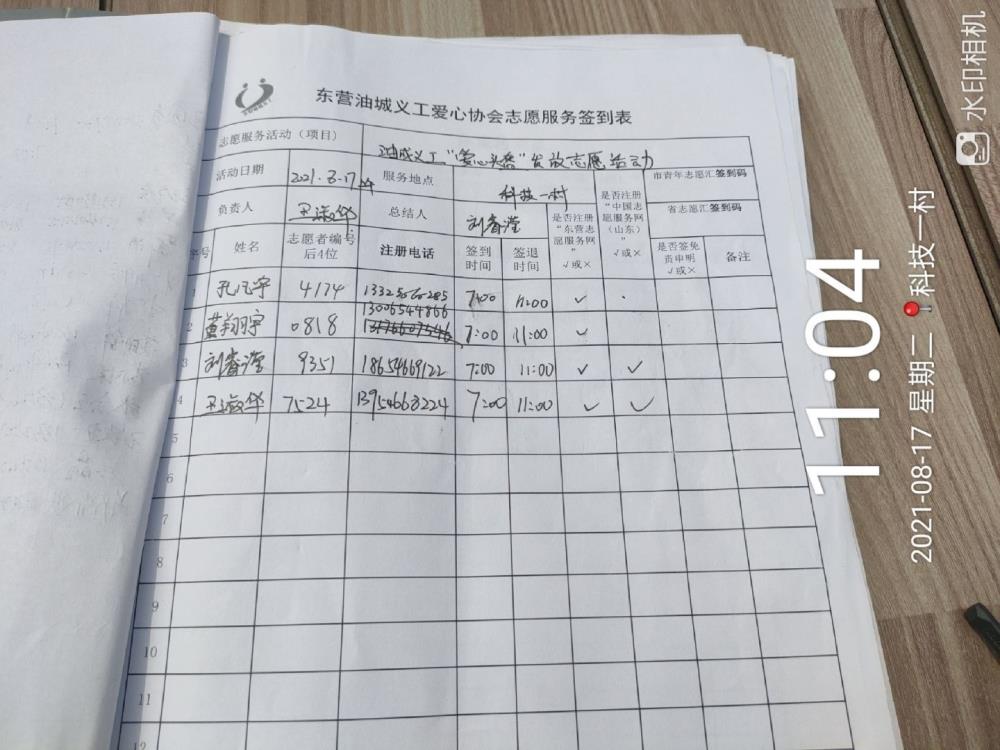 东营油城义工爱心协会志愿服务签到表
志愿服务活动（项目） 油城义工“爱心头盔”发放志愿活动
活动日期 2021.8.17 服务地点 科技一村 市青年志愿汇签到码
负责人 总结人 刘春滢 省志愿汇签到码
序号 姓名 志愿者编号后4位 注册电话 签到时间 签退时间 是否注册“东营志愿服务网” √或× 是否注册“中国志愿服务网（山东）” √或× 是否签免责申明 √或× 备注
1 4174 7:00 11:00 ✓
13006544866
2 黄翔宇 0818 7:00 11:00 ✓
3 刘春滢 9351 18654669122 7:00 11:00 ✓ ✓
4 7524 13954668224 7:00 11:00 ✓ ✓
5
6
7
8
9
10
11
12
水印相机
11:04
2021-08-17 星期二 科技一村